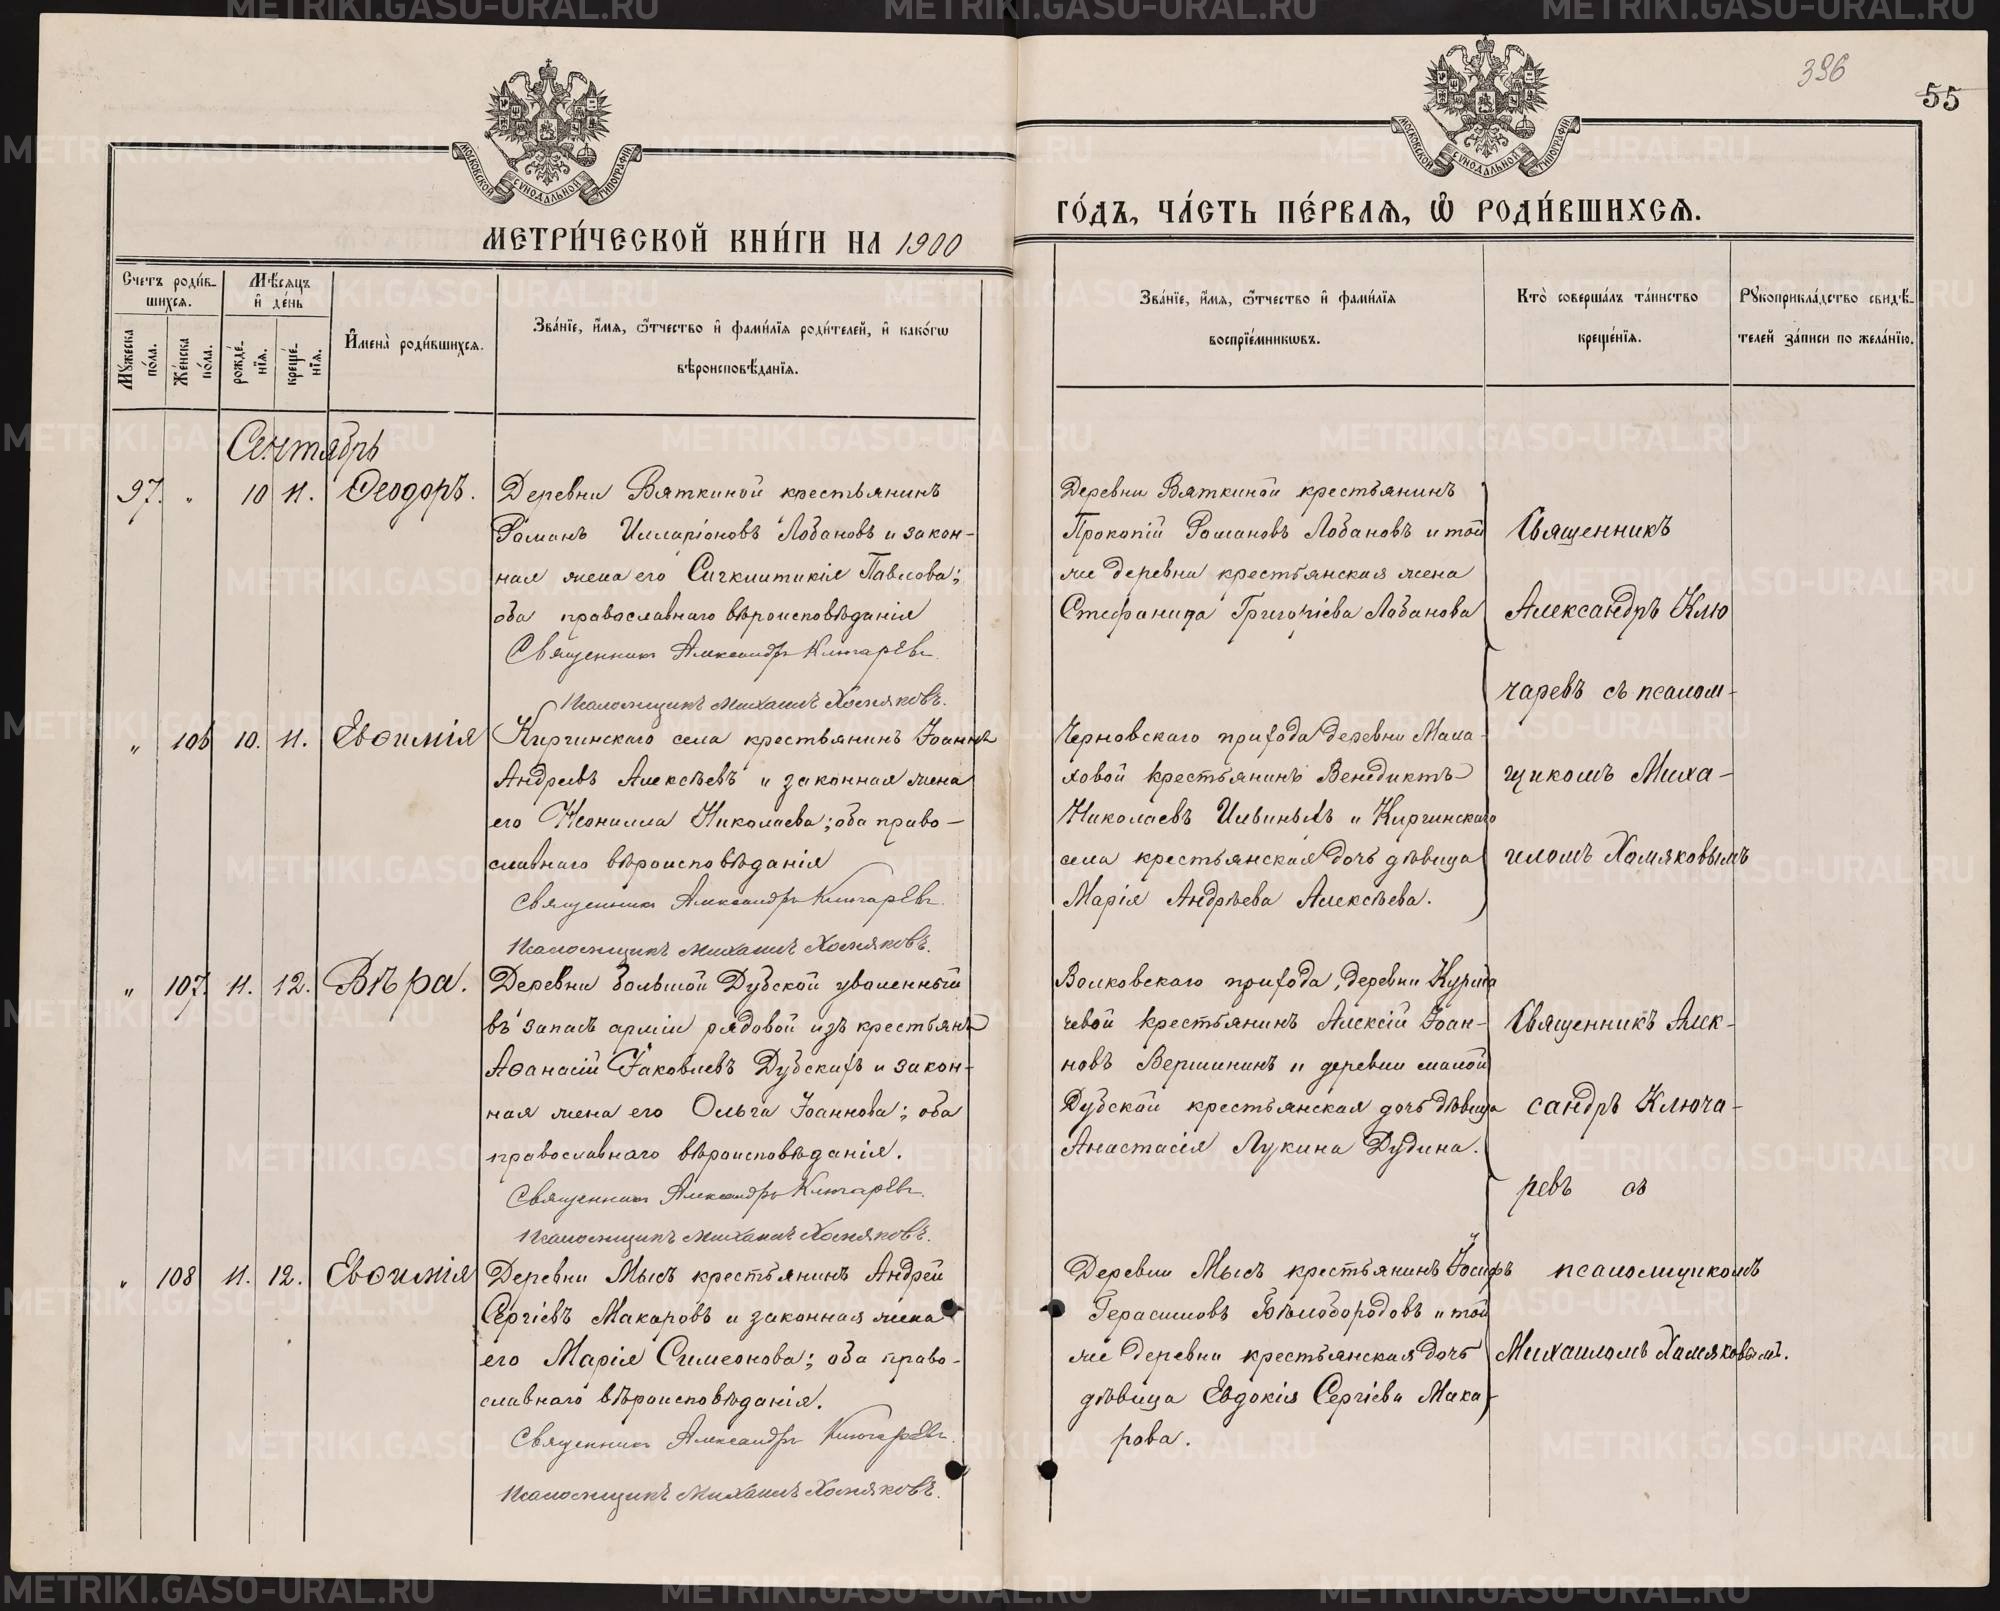 396
55
МОСКОВСКОЙ СУНОДАЛЬНОЙ ТИПОГРАФИИ
МОСКОВСКОЙ СУНОДАЛЬНОЙ ТИПОГРАФИИ
МЕТРИ́ЧЕСКОЙ КНИ́ГИ НА 1900
ГО́ДЪ, ЧА́СТЬ ПЕ́РВАѦ, Ѽ РОДИ́ВШИХСѦ.
Счетъ роди́в-
шихсѧ.
Мѣ́сѧцъ
и҆ де́нь
Му́жеска по́ла.
Же́нска по́ла.
рожде́-
нїѧ.
креще́-
нїѧ.
И҆мена̀ роди́вшихсѧ.
Зва́нїе, и҆́мѧ, ѻ҆́тчество и҆ фами́лїѧ роди́телей, и҆ како́гѡ
вѣроисповѣ́данїѧ.
Зва́нїе, и҆́мѧ, ѻ҆́тчество и҆ фами́лїѧ
воспрїе́мникѡвъ.
Кто̀ соверша́лъ та́инство
креще́нїѧ.
Рукоприкла́дство свидѣ́-
телей за́писи по жела́нїю.
Сентябрь
97. " 10 11. Ѳеодоръ.
Деревни Вяткиной крестьянинъ
Романъ Илларіоновъ Лобановъ и закон-
ная жена его Сигклитикія Павлова;
оба православнаго вѣроисповѣданія
Священникъ Александръ Ключаревъ
Псаломщикъ Михаилъ Хомяковъ.
Деревни Вяткиной крестьянинъ
Прокопій Романовъ Лобановъ и той
же деревни крестьянская жена
Стефанида Григорьева Лобанова
Священникъ
Александръ Клю
чаревъ съ псалом-
щикомъ Миха-
иломъ Хомяковымъ
" 106 10. 11. Евѳимія
Киргинскаго села крестьянинъ Іоаннъ
Андреевъ Алексѣевъ и законная жена
его Неонилла Николаева; оба право-
славнаго вѣроисповѣданія
Священникъ Александръ Ключаревъ.
Псаломщикъ Михаилъ Хомяковъ.
Черновскаго прихода деревни Мала-
ховой крестьянинъ Венедиктъ
Николаевъ Ильиныхъ и Киргинскаго
села крестьянская дочь дѣвица
Марія Андрѣева Алексѣева.
" 107. 11. 12. Вѣра.
Деревни большой Дубской уволенный
въ запасъ арміи рядовой изъ крестьянъ
Аѳанасій Іаковлевъ Дубскихъ и закон-
ная жена его Ольга Іоаннова; оба
православнаго вѣроисповѣданія.
Священникъ Александръ Ключаревъ.
Псаломщикъ Михаилъ Хомяковъ.
Волковскаго прихода, деревни
чевой крестьянинъ Алексій Іоан-
новъ Вершининъ и деревни малой
Дубской крестьянская дочь дѣвица
Анастасія Лукина Дудина.
Священникъ Алек-
сандръ Ключа-
ревъ съ
псаломщикомъ
Михаиломъ Хомяковымъ.
" 108 11. 12. Евѳимія
Деревни Мысъ крестьянинъ Андрей
Сергіевъ Макаровъ и законная жена
его Марія Симеонова; оба право-
славнаго вѣроисповѣданія.
Священникъ Александръ Ключаревъ.
Псаломщикъ Михаилъ Хомяковъ.
Деревни Мысъ крестьянинъ Іосифъ
Герасимовъ Бѣлобородовъ и той
же деревни крестьянская дочь
дѣвица Евдокія Сергіева Мака-
рова.
METRIKI.GASO-URAL.RU